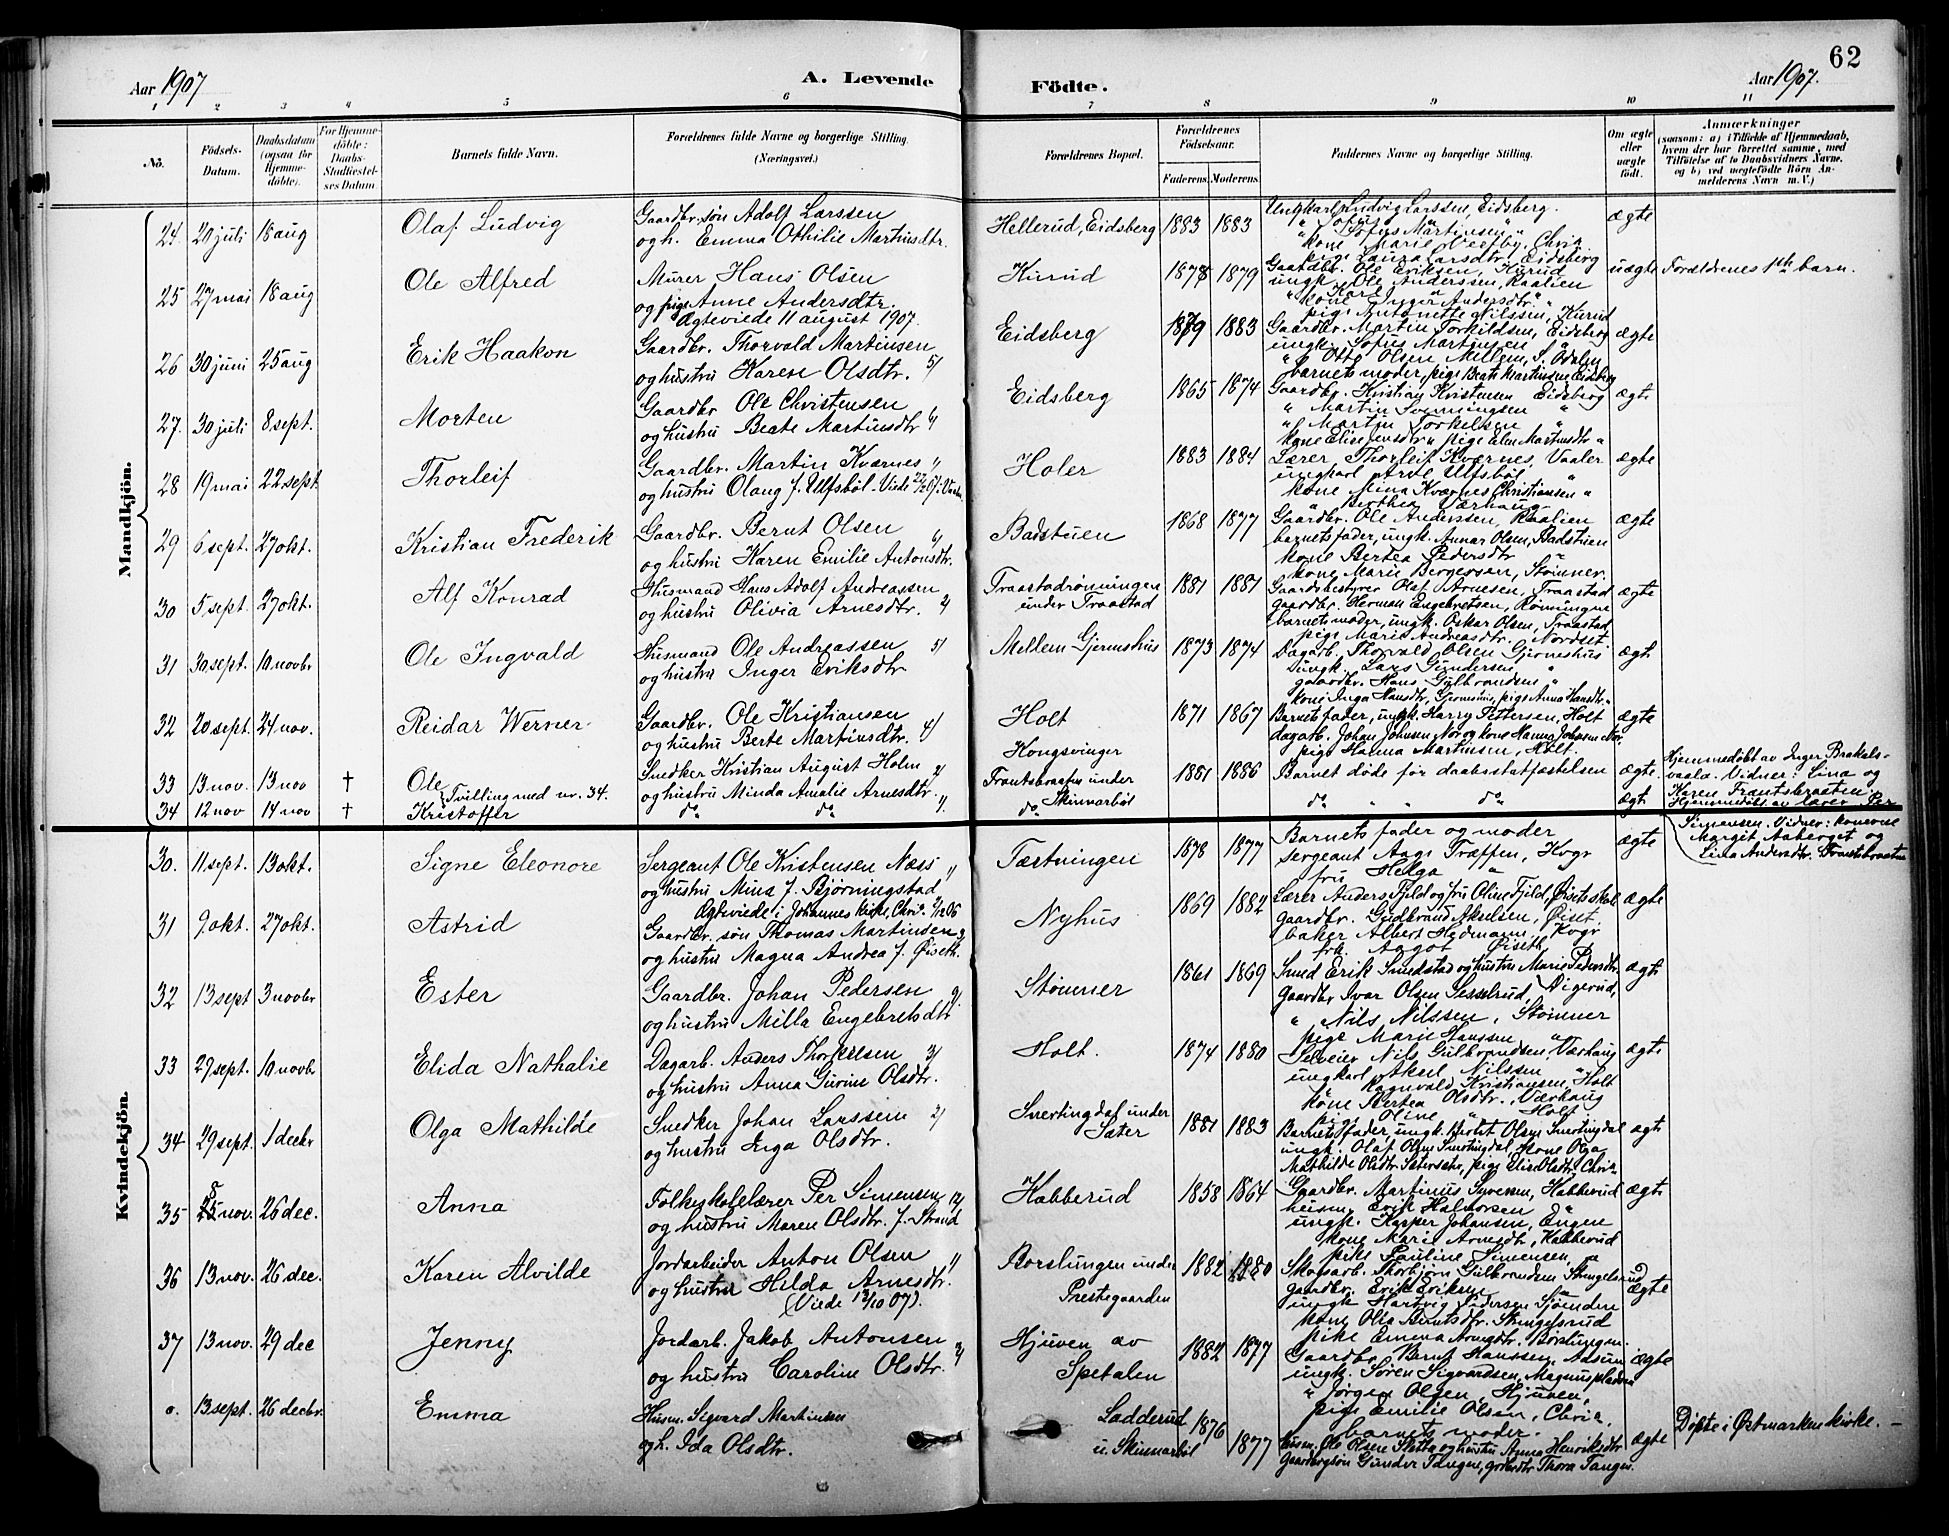 62
Aar 1907
A. Levende
Födte.
Aar 1907.
1 2 3 4 5 6 7 8 9 10 11
Nô.
Födsels-
Datum.
Daabsdatum
(ogsaa för
Hjemme-
döbte).
For Hjemme-
döbte:
Daabs-
Stadfæstel-
ses Datum
Barnets fulde Navn.
Forældrenes fulde Navne og borgerlige Stilling.
(Næringsvei.)
Forældrenes Bopæl.
Forældrenes
Födselsaar.
Faderens. Moderens.
Faddernes Navne og borgerlige Stilling.
Om ægte
eller
uægte
födt.
Anmærkninger
(saasom: a) i Tilfælde af Hjemmedaab,
hvem der har forrettet samme, med
Tilföielse af to Daabsvidners Navne,
og b) ved uægtefödte Börn An-
melderens Navn m. V.)
Mandkjön.
24. 20 juli 18 aug Olaf Ludvig
Gaardbr. søn Adolf Larssen
og h. Emma Othilie Martinsdtr.
Hellerud, Eidsberg 1883 1883
Ungkarl Ludvig Larssen, Eidsberg.
" Sofus Martinsen "
kone Marie Vedfby, Chria
pige Laura Larsdtr. Eidsberg
ægte
25 27 mai 18 aug Ole Alfred
Murer Hans Olsen
og pige Anne Andersdtr.
Ægteviede 11 august 1907.
Kurud 1878 1879
Gaardbr. Ole Eriksen, Kurud
ungk. Ole Anderssen, Raalien
kone Inger Andersdtr. "
pige Antonette Nilssen, Kurud
uægte Forældrenes 1ste barn.
26 30 juni 25 aug Erik Haakon
Gaardbr. Thorvald Martinsen
og hustru Karen Olsdtr. 5/
Eidsberg 1879 1883
Gaardbr. Martin Torkildsen, Eidsberg
ungk. Sofus Martinsen "
" Otto Olsen Mellem, S. Odalen
barnets moder, pige Beate Martinsen Eidsberg
ægte
27. 30 juli 8 sept. Morten
Gaardbr Ole Christensen
og hustru Beate Martinsdtr
Eidsberg 1865 1874
Gaardbr. Kristian Kristensen Eidsberg
" Martin Torkelsen "
kone Elise Jensdtr " pige Elen Martinsdtr "
ægte
28 19 mai 22 sept. Thorleif
Gaardbr. Martin Kværnes
og hustru Olaug f. Ulfsbøl
Holer 1883 1884
Lærer Thorleif Kværnes, Vaaler
ungkarl Arne Ulfsbøl "
kone Mina Kværnes Christiansen "
" Berthea Værhaug
ægte
29 6 sept. 27 okt. Kristian Frederik
Gaardbr. Bernt Olsen
og hustru Karen Emilie Antonsdtr.
Badstuen 1868 1877
Gaardbr. Ole Anderssen, Raalien
barnets fader, ungk. Annar Olsen, Badstuen
kone Bertea Pedersdtr "
kone Marie Bergersen, Stømner.
ægte
30 5 sept. 27 okt. Alf Konrad
Husmand Hans Adolf Andreassen
og hustru Olivia Arnesdtr. 2/
Traastadrønningen
under Traastad 1881 1881
Gaardbestyrer Olaf Arnesen, Traastad
gaardbr. Herman Engebretsen, Rønningne
barnets moder, ungk. Oskar Olsen, Traastad
pige Marie Andreasdtr. Nordset
ægte
31 30 sept. 10 novbr Ole Ingvald
Husmand Ole Andreassen 5/
og hustru Inger Eriksdtr
Mellem Gjermshus 1873 1874
Dagarb. Thorvald Olsen Gjermshus
ungk. Lars Gundersen "
gaardbr. Hans Gulbrandsen "
kone Inga Hansdtr, Gjermshus, pige Anna Hansdtr. "
ægte
32 20 sept. 24 nov. Reidar Werner
Gaardbr. Ole Kristiansen
og hustru Berte Martinsdtr. 4/
Holt 1871 1867
Barnets fader, ungk. Harry Pettersen, Holt
dagarb. Johan Johnsen Nor og kone Hanna Johnsen Nor,
pige Hanna Martinsen, Holt.
ægte
Kongsvinger
33 13 nov. 13 nov † Ole
Tvilling med nr. 34.
Snedker Kristian August Holm
og hustru Minda Amalie Arnesdtr.
Frantsbraaten under
Skinnarbøl 1881 1886
Barnet døde før daabsstatfæstelsen ægte
Hjemmedøbt av Inger Brakals-
vaala. Vidner: Lina og
Karen Frantsbraaten.
34 12 nov 14 nov † Kristoffer
do do do do " " do ægt.
Hjemmedøbt av lærer Per
Simensen. Vidner: konerne
Margit Aaberget og
Lina Andersdtr. Frantsbraaten
Kvindekjön.
30. 11 sept. 13 okt. Signe Eleonore
Sergeant Ole Kristensen Næss
og hustru Mina f. Bjørningstad
Ægteviede i Johannes kirke, Chria.
Tæstningen 1878 1877
Barnets fader og moder
Sergeant Aage Træffen, Kvgr
fru Helga "
ægte
31 9 okt. 27 okt. Astrid
Gaardbr. søn Thomas Martinsen
og hustru Magna Andrea f. Øiseth.
Nyhus 1869 1882
Lærer Anders Fjeld og fru Oline Fjeld, Øisets skole
gaardbr. Gudbrand Akselsen, Øiset
baker Albert Hedmann, Kvgr
frk. Aagot Øiseth
ægte
32 13 sept 3 novbr Ester
Gaardbr. Johan Pedersen
og hustru Milla Engebretsdtr
Stømner 1861 1869
Smed Erik Smedstad og hustru Marie Pedersdtr.
Gaardbr Ivar Olsen Sesselrud, Digerud,
" Nils Nilssen, Stømner
pige Marie Hanssen "
ægte
33 29 sept. 10 novbr Elida Nathalie
Dagarb. Anders Thorkelsen 3/
og hustru Anna Gurine Olsdtr.
Holt. 1874 1880
Selveier Nils Gulbrandsen, Værhaug
ungkarl Aksel Nilssen "
Ragnvald Kristiansen, Holt
kone Bertea Olsdtr., Værhaug
" Oline " Holt.
ægte
34 29 sept. 1 decbr Olga Mathilde
Snedker Johan Larssen 2/
og hustru Inga Olsdtr.
Snertingdal under
Sæter 1881 1883
Barnets fader, ungk. Bernt Olsen Snertingdal
ungk. Olaf Olsen Snertingdal, kone Olga
Mathilde Olsdtr. Sæter, pige Elise Olsdtr. Chria
ægt.
35 25 nov. 26 dec. Anna
Folkeskolelærer Per Simensen 12/
og hustru Maren Olsdtr. f. Strand
Habberud 1858 1864
Gaardbr. Martinus Syversen, Habberud
husm. Erik Halvorsen "
ungk. Kasper Johansen, Engen
kone Marie Arnesdtr., Habberud
pike Pauline Simensen, "
ægte
36 13 nov. 26 dec. Karen Alvilde
Jordarbeider Anton Olsen
og hustru Hilda Arnesdtr.
(Viede 12/10 07).
Borslungen under
Prestegaarden 1882 1880
Skogsarb. Thorbjørn Gulbrandsen Stengelsrud
gaardbr. Erik Eriksen "
ungk Hartvig Pedersen Tjønden
kone Olia Berntsdtr. Stengelsrud
pike Emma Arnesdtr. Børslungen.
ægte
37 13 nov. 29 dec Jenny
Jordarb. Jakob Antonsen
og hustru Caroline Olsdtr.
Hjuven av
Spetalen 1882 1877
Gaardbr. Bernt Hanssen, Aasum
ungk. Søren Sigvardsen, Magnuspladsen
" Jørgen Olsen, Hjuven,
pige Emilie Olsen, Chria.
barnets moder.
ægte
o. 13 sept. 26 decbr. Emma
Husm. Sigvard Martinsen
og h. Ida Olsdtr.
Ladderud
u. Skinnarbøl 1876 1877
Husm. Ole Olsen Sletta og hustru Anna Henriksdtr
Gaardbrgsøn Gunder Tangen, grbrdtr Thora Tangen.
ægte Døpte i Østmarken kirke.